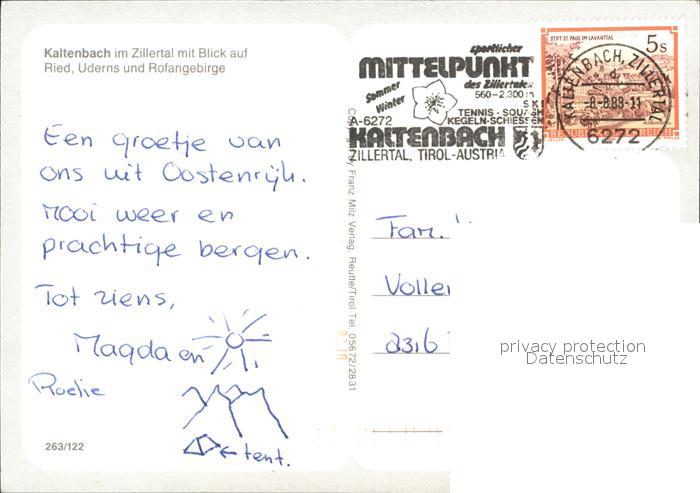 Kaltenbach im Zillertal mit Blick auf
Ried, Uderns und Rofangebirge
Een groetje van
ons uit Oostenrijk.
Mooi weer en
prachtige bergen.
Tot ziens,
Magda en
Roelie
← tent.
263/122
Franz Milz Verlag, Reutte/Tirol Tel. 05672/2831
sportlicher
MITTELPUNKT
des Zillertales
Sommer
Winter
560-2.300 m
SKI
TENNIS-SQUASH
KEGELN-SCHIESSEN
A-6272
KALTENBACH
ZILLERTAL, TIROL-AUSTRIA
STIFT ST. PAUL IM LAVANTTAL
5s
REPUBLIK ÖSTERREICH
KALTENBACH, ZILLERTAL
-8.-8.88-11
6272
Fam.
2316
privacy protection
Datenschutz